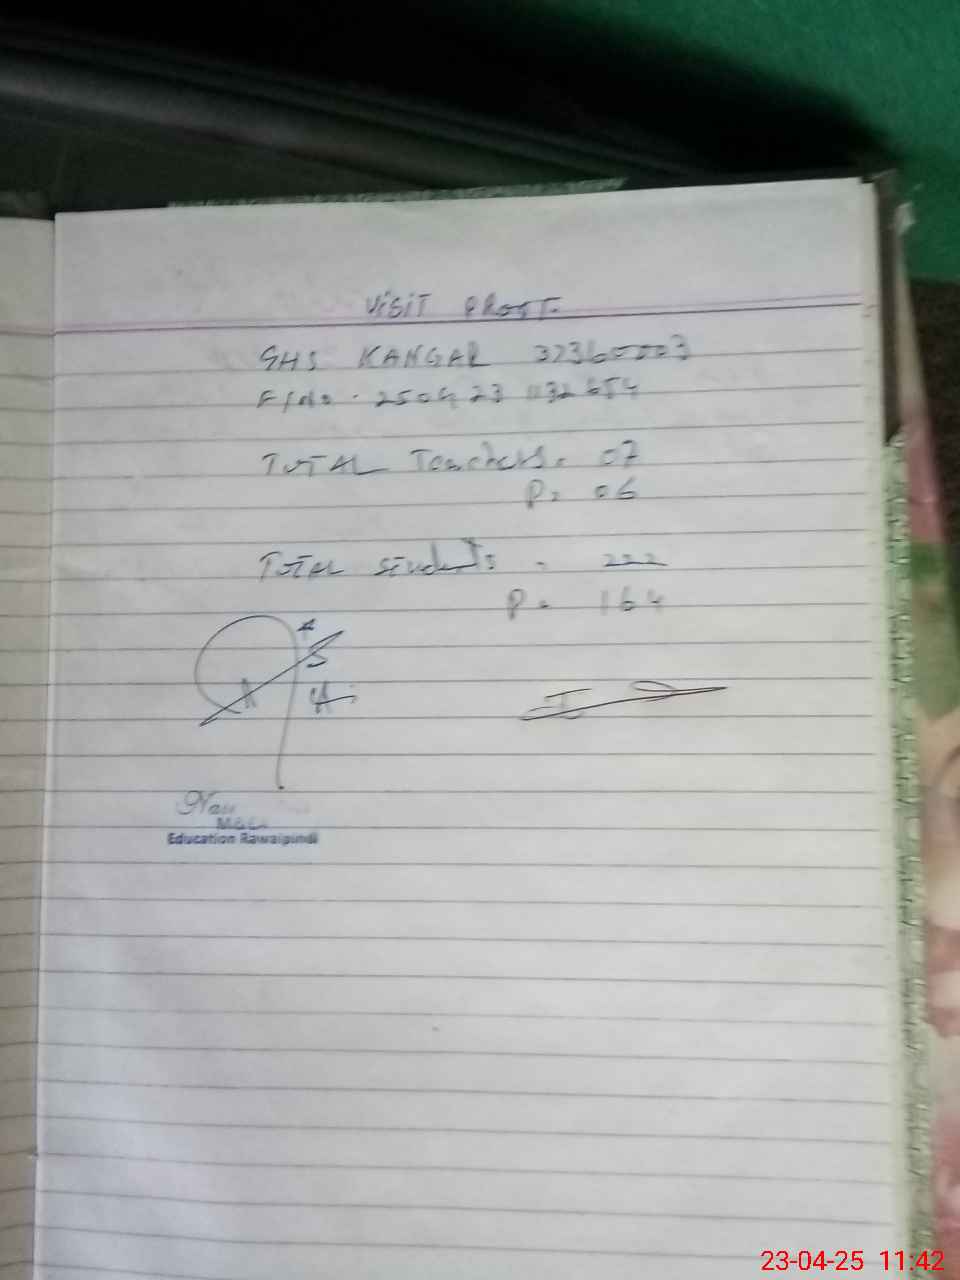 VISIT PROOT.
GHS KANGAR 37360003
F/No. 250423 1132654
TOTAL Teachers. 07
P. 06
TOTAL Students. 222
P. 164
Education Rawalpindi
23-04-25 11:42